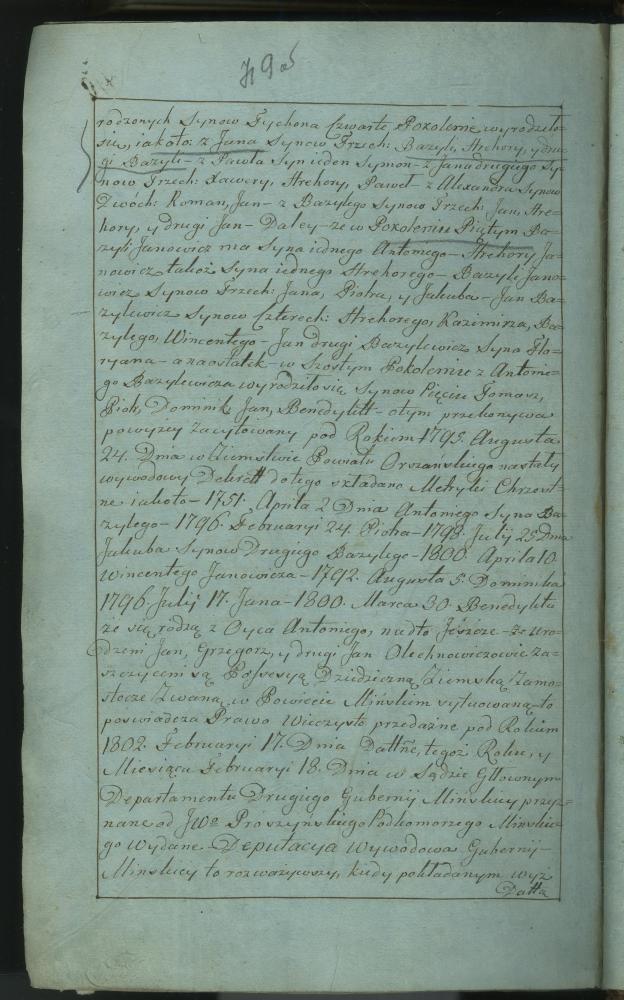 rodzonych Synow Tychona Czwarte Pokolenie wyrodziło=
sie, iakoto: z Jana Synow Trzech: Bazyli, Hrehory, y dru=
gi Bazyli – z Pawła Syn ieden Symon – z Jana drugiego Sy=
now Trzech: Xawery, Hrehory, Paweł – z Alexandra Synow
Dwóch: Roman, Jan – z Bazylego Synow Trzech: Jan, Hre=
hory, y drugi Jan – Daley – ze w Pokoleniu Piątym Ba=
zyli Janowicz ma Syna iednego Antoniego – Hrehory Ja=
nowicz takoż Syna iednego Hrehorego – Bazyli Jano=
wicz Synow Trzech: Jana, Piotra, y Jakuba – Jan Ba=
zylewicz Synow Czterech: Hrehorego, Kazimirza, Ba=
zylego, Wincentego – Jan drugi Bazylewicz Syna Flo=
ryana – a naostatek – w Szostym Pokoleniu z Antonie=
go Bazylewicza wyrodziło się Synow Pięciu Tomasz,
Piotr, Dominik, Jan, Benedykt – o tym przekonywa
powyzey zacytowany pod Rokiem 1795. Augusta
24. Dnia w Ziemstwie Powiatu Orszańskiego nastały
wywodowy Dekrett do tego składano Metryki Chrzest=
ne iakoto – 1751. Aprila 2 Dnia Antoniego Syna Ba=
zylego – 1796. Februaryi 24. Piotra – 1798. Julij 25 Dnia
Jakuba Synow Drugiego Bazylego – 1800. Aprila 10
Wincentego Janowicza – 1792. Augusta 5. Dominika
1796. Julij 17. Jana – 1800. Marca 30. Benedykta
że się rodzą z Oyca Antoniego, nadto Jeszcze – że uro=
dzeni Jan, Grzegorz, y drugi Jan Olechnowiczowie za=
szczyceni są Possesyą Dziedziczną Ziemską Zamo=
stocze Zwaną w Powiecie Mińskim sytuowaną – to
poswiadcza Prawo Wieczysto przedażne pod Rokiem
1802. Februaryi 17. Dnia Dattne, tegoż Roku, y
Miesiąca Februaryi 18. Dnia w Sądzie Głłownym
Departamentu Drugiego Gubernij Minskiey przyz=
nane od JWo Proszyńskiego Podkomorzego Minskie=
go wydane – Deputacya Wywodowa Gubernij –
Minskiey to rozważywszy, kiedy pokładanym wyż
Datta